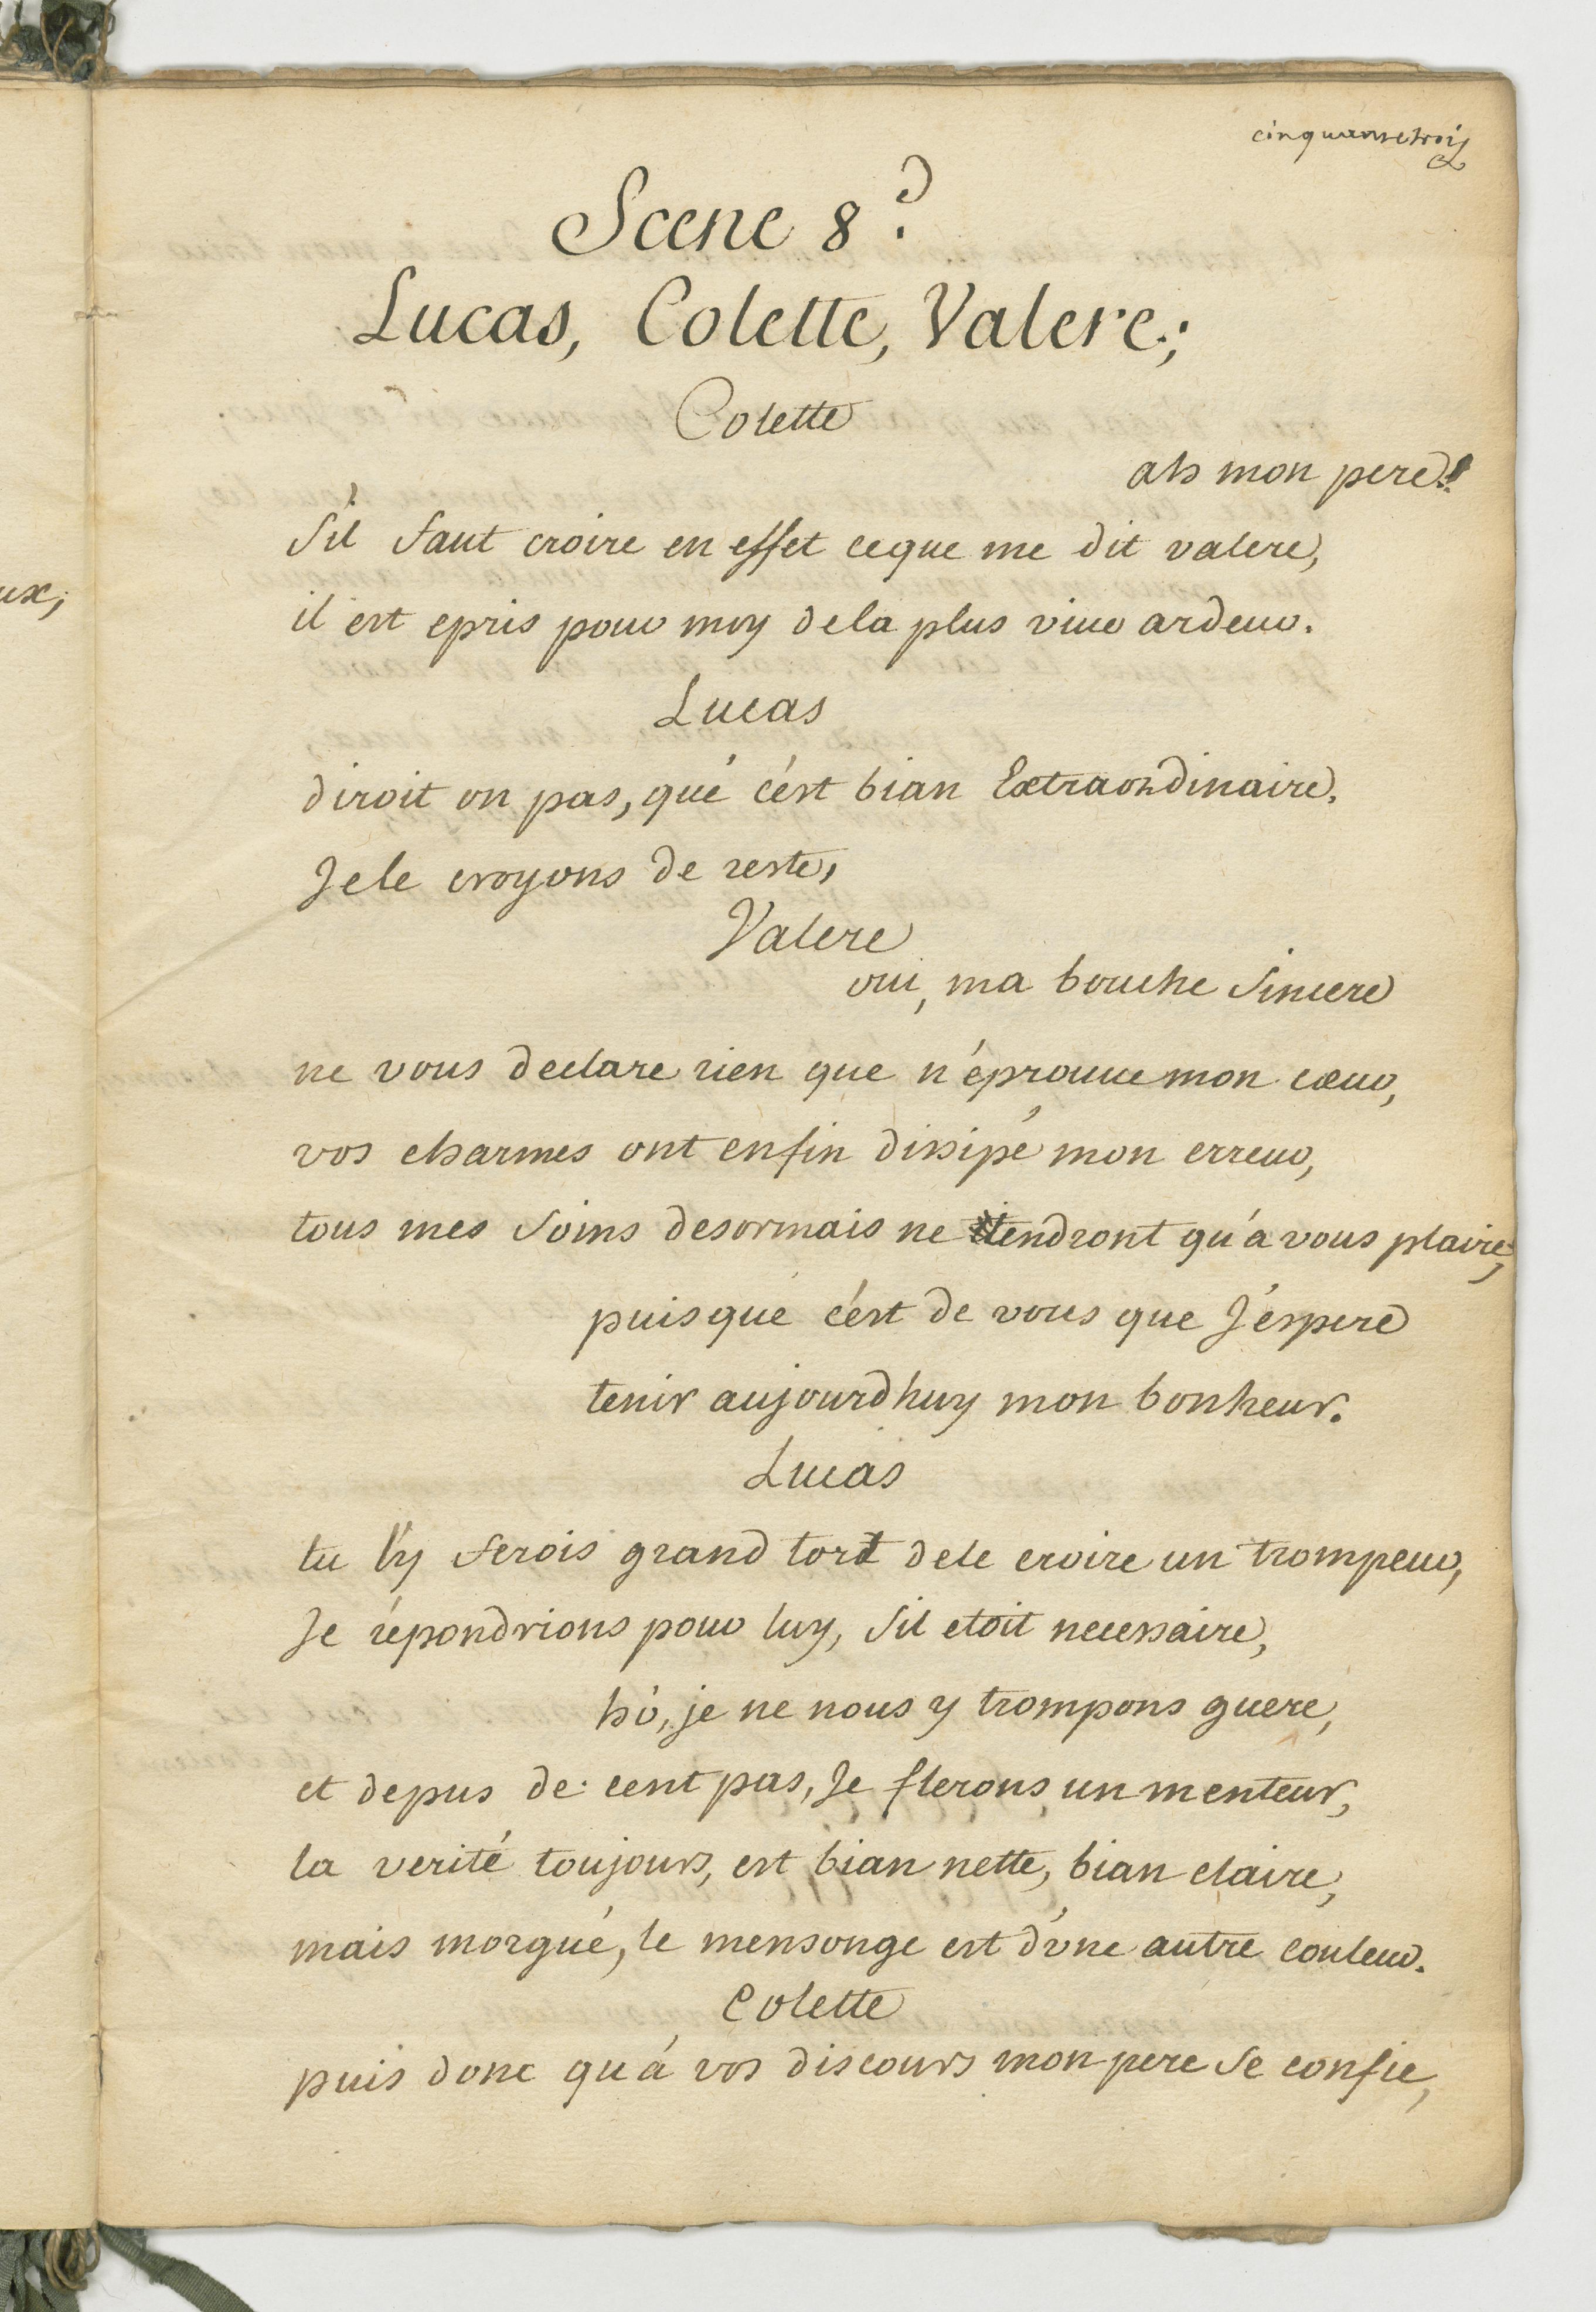 cinquante trois
Scene 8e.
Lucas, Colette, Valere;
Colette
ah mon pere!
S'il faut croire en effet ceque me dit valere,
ux;
il est epris pour moy dela plus viue ardeur.
Lucas
diroit on pas, qué c'est bian Extraordinaire.
Jele croyons de reste,
Valere
oui, ma bouche Sincere
ne vous declare rien que n'éprouue mon cœur,
vos charmes ont enfin dissipé mon erreur,
tous mes Soins desormais ne tendront qu'a vous plaire,
puisque c'est de vous que J'espere
tenir aujourdhuy mon bonheur.
Lucas
tu l'y ferois grand tort dele croire un trompeur,
Je répondrions pour luy, Sil etoit necessaire,
hó, je ne nous y trompons guere,
et depus de cent pas, Je flerons un menteur,
la verité toujours, est bian nette, bian claire,
mais morgué, le mensonge est d'vne autre couleur.
Colette
puis donc qu'á vos discours mon pere Se confie,